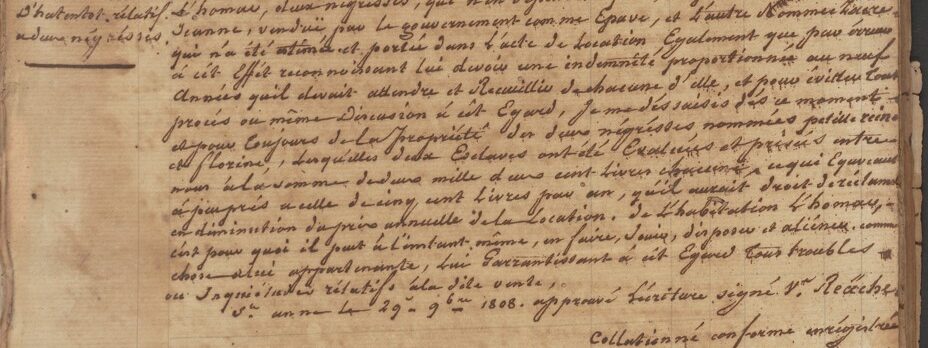 D'hatentot. relatif.
a deux négresses.
L'homas, deux négresses, que n'en
Jeanne, vendüe par le gouvernement comme Epave, et L'autre Nommée
qui n'a été estimée et portée dans L'acte de Location Egalement que par erreur
à cet Effet reconnoissant lui devoir une indemnité proportionnée au neuf
Années qu'il devait attendre et Recueillir de chacune d'elle, et pour éviter tout
procés ou même Discussion à cet Egard, Je me déssaisis dès ce moment
et pour toujours de la Propriété des deux négresses nommées petitte reine
et florine, lesquelles deux Esclaves ont été Evaluées et prisés entre
nous à la somme de deux mille deux cent Livres chacune, ce qui Equivaut
à peu près a celle de cinq cent Livres par an, qu'il aurait droit de réclamer
en diminution du prix annuelle de la Location. de L'habitation L'homas,
c'est pour quoi il peut à l'instant même, en faire, Jouir, disposer et aliéner, comme
chose a lui appartenante, Lui Garrantissant a cet Egard Tous troubles
ou Inquiétudes relatifs à la dite vente,
Ste anne le 29. 9bre 1808. approuvé L'écriture signé Vr Reäche
Collationné conforme enrégistrée